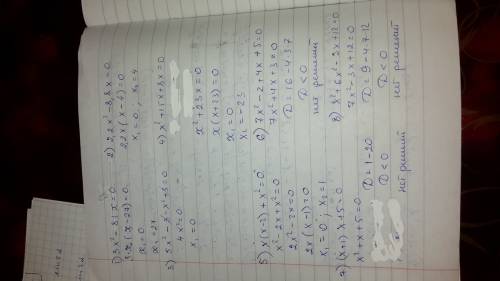 1) 3x² - 81x = 0
3x(x - 27) = 0
x₁ = 0
x₂ = 27
2) 2,2x² - 8,8x = 0
2,2x(x - 4) = 0
x₁ = 0; x₂ = 4
3) 5x² - x - x² + 5 = 0
4x² = 0
x₁ = 0
4) x² + 15x + 8x = 0
x² + 23x = 0
x(x + 23) = 0
x₁ = 0
x₂ = -23
5) x(x - 2) + x² = 0
x² - 2x + x² = 0
2x² - 2x = 0
2x(x - 1) = 0
x₁ = 0; x₂ = 1
6) 7x² - 2 + 4x + 5 = 0
7x² + 4x + 3 = 0
D = 16 - 4·3·7
D < 0
нет решений
7) (x + 1) x + 5 = 0
x² + x + 5 = 0
D = 1 - 20
D < 0
нет решений
8) x² + 6x² - 3x + 12 = 0
7x² - 3x + 12 = 0
D = 9 - 4·7·12
D < 0
нет решений